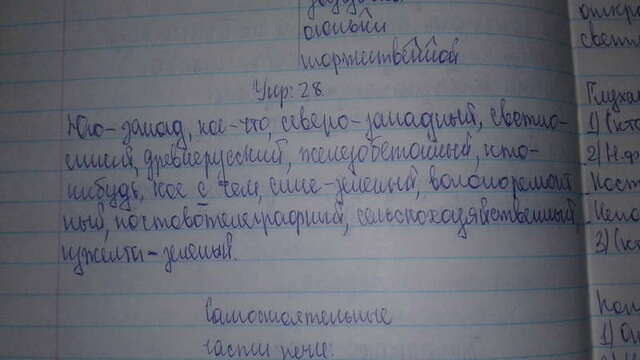 торжественной
Упр: 28
Юго-запад, кое-что, северо-западный, светло-
синий, древнерусский, железобетонный, кто-
нибудь, кое с чем, сине-зеленый, вагоноремонт
ный, почтовотелеграфный, сельскохозяйственный,
изжелта-зеленый.
Самостоятельные
части речи:
откро
светл
Глуха
1) (кто
2) Н.ф
Кост
3) (к
Кон